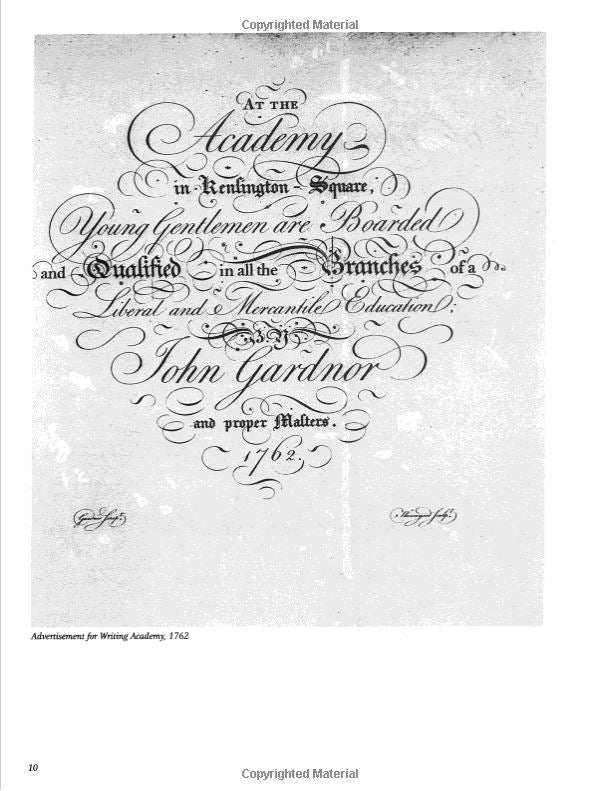 Copyrighted Material
AT THE
Academy
in Kensington-Square,
Young Gentlemen are Boarded
and Qualified in all the Branches of a
Liberal and Mercantile Education;
BY
John Gardnor
and proper Maſters.
1762.
Advertisement for Writing Academy, 1762
10
Copyrighted Material